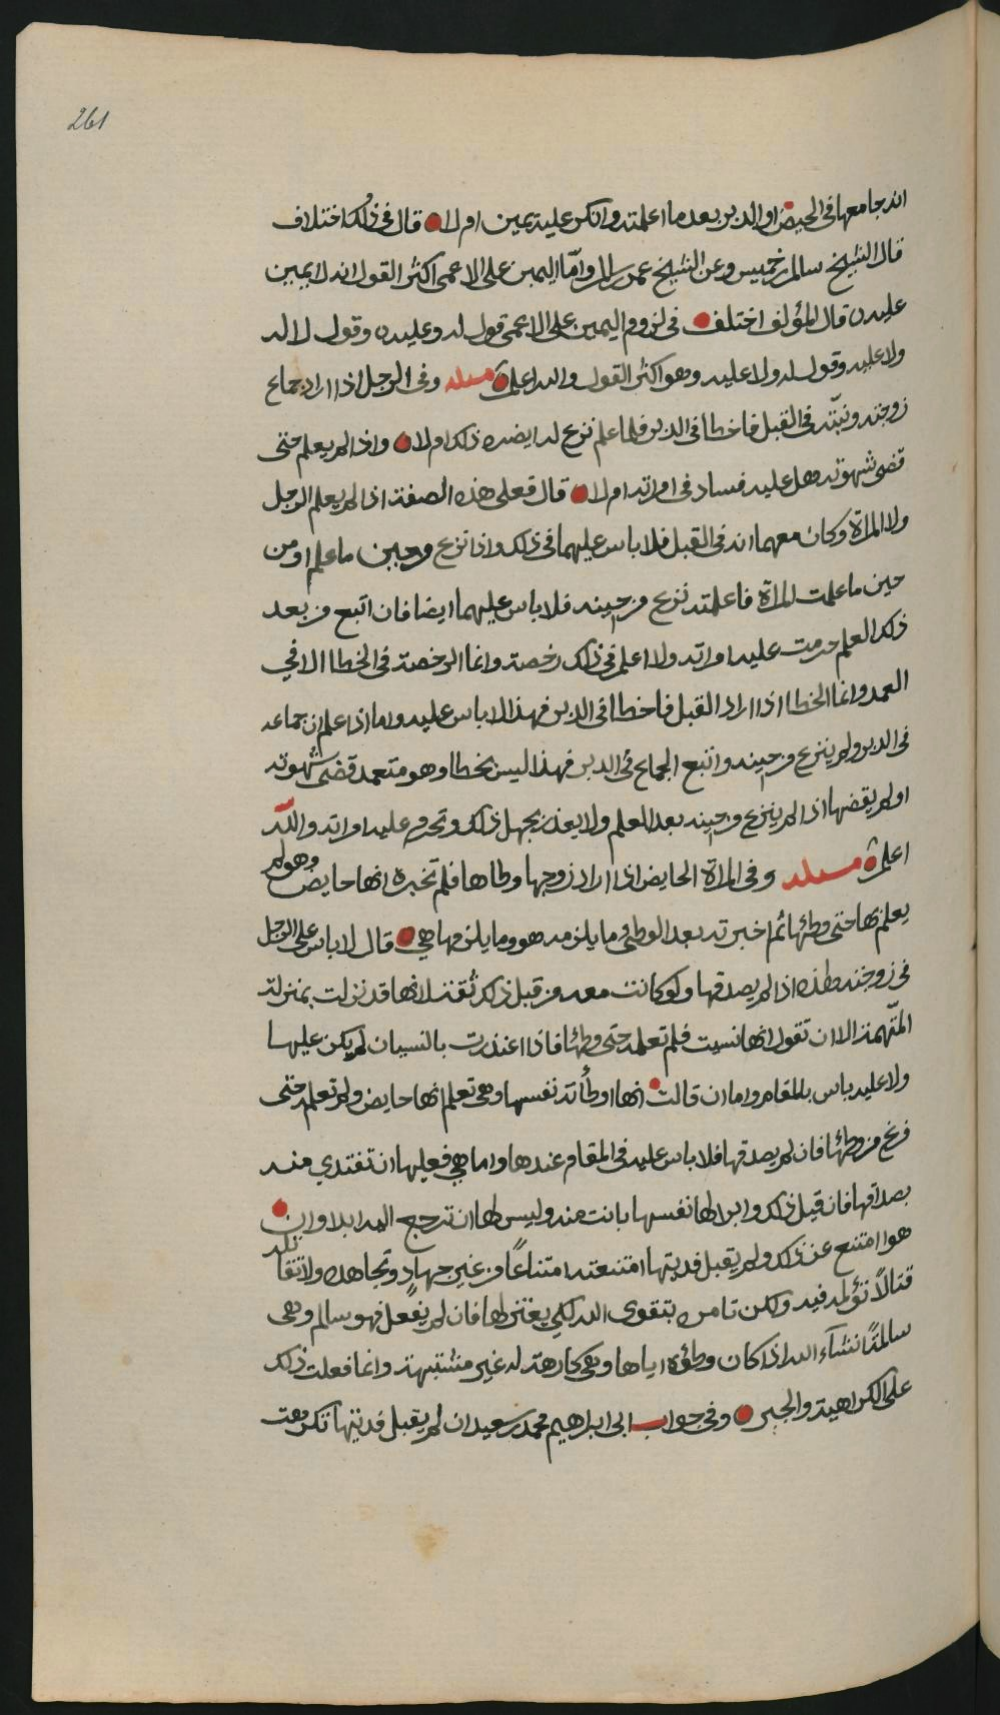 261
انه جامعها في الحيض او الدبر بعد ما اعلمته وانكر عليه يمين ام لا قال في ذلك اختلاف
قال الشيخ سالم بن خميس وعن الشيخ عمر سالم واما اليمين على الاعمى اكثر القول انه لا يمين
عليه قال المؤلف اختلف في لزوم اليمين على الاعمى قول له وعليه وقول لا له
ولا عليه وقول له ولا عليه وهو اكثر القول والله اعلم مسله وفي الرجل اذا اراد جماع
زوجته ونيّته في القبل فاخطا في الدبر فلما علم نزع له ايضره ذلك ام لا واذا لم يعلم حتى
قضى شهوته هل عليه فساد في امراته ام لا قال فعلى هذه الصفة اذا لم يعلم الرجل
ولا المراة وكان معهما انه في القبل فلا باس عليهما في ذلك واذا نزع من حين ما علم او من
حين ما علمت المراة فاعلمته نزع من حينه فلا باس عليهما ايضا فان اتبع من بعد
ذلك العلم حرمت عليه امراته ولا اعلم في ذلك رخصة وانما الرخصة في الخطا لا في
العمد وانما الخطا اذا اراد القبل فاخطا في الدبر فهذا لا باس عليه واما اذا علم ان جماعه
في الدبر ولم ينزع من حينه واتبع الجماع في الدبر فهذا ليس بخطا وهو متعمد قضى شهوته
او لم يقضها اذا لم ينزع من حينه بعد العلم ولا يعذر بجهل ذلك وتحرم عليه امراته والله
اعلم مسله وفي المراة الحايض اذا اراد زوجها وطاها فلم تخبره انها حايض وهو لم
يعلم بها حتى وطئها ثم اخبرته بعد الوطئ ما يلزمه هو وما يلزمها هي قال لا باس على الرجل
في زوجته هذه اذا لم يصدقها ولو كانت معه من قبل ذلك ثقة لانها قد نزلت بمنزلة
المتّهمة الا ان تقول انها نسيت فلم تعلمه حتى وطئها فاذا اعتذرت بالنسيان لم يكن عليها
ولا عليه باس بالمقام واما ان قالت انها اوطأته نفسها وهي تعلم انها حايض ولم تعلمه حتى
فرغ من وطئها فان لم يصدقها فلا باس عليه في المقام عندها واما هي فعليها ان تفتدي منه
بصداقها فان قبل ذلك وابرا لها نفسها بانت منه وليس لها ان ترجع اليه ابدا وان
هو امتنع عن ذلك ولم يقبل فديتها امتنعت امتناعًا من غير جهادٍ وتجاهده ولا تقاتله
قتالاً تؤلمه فيه ولكن تامره بتقوى الله لكي يعتزلها فان لم يفعل فهو سالم وهي
سالمة ان شآء الله اذا كان وطؤه اياها وهي كارهة له غير مشتهية وانما فعلت ذلك
على الكراهية والجبر وفي جواب ابي ابراهيم محمد بن سعيد ان لم يقبل فديتها تكرهت